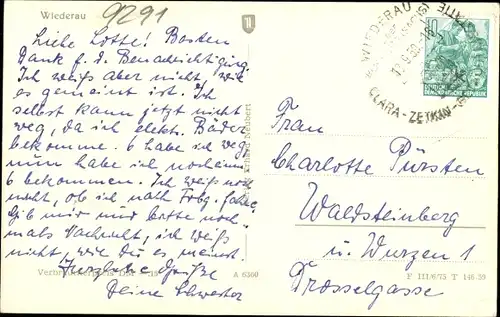 Wiederau
9291
Liebe Lotte! Besten
Dank f. d. Benachrichtigung.
Ich weiß aber nicht, wie
es gemeint ist. Ich
selbst kann jetzt nicht
weg, da ich elekt. Bäder
bekomme. 6 habe ich weg
nun habe ich nocheinm.
6 bekommen. Ich weiß noch
nicht, ob ich nach Frbg. fahre.
Gib mir und bitte noch
mals Nachricht, ich weiß
nicht, wie du es meinst.
Herzliche Grüße
Deine Schwester
A 6360
WIEDERAU
CLARA-ZETKIN-
10
DEUTSCHE
DEMOKRATISCHE REPUBLIK
Frau
Charlotte Pürsten
Waldsteinberg
ü. Wurzen 1
Drosselgasse
F III/6/75 T 146-59